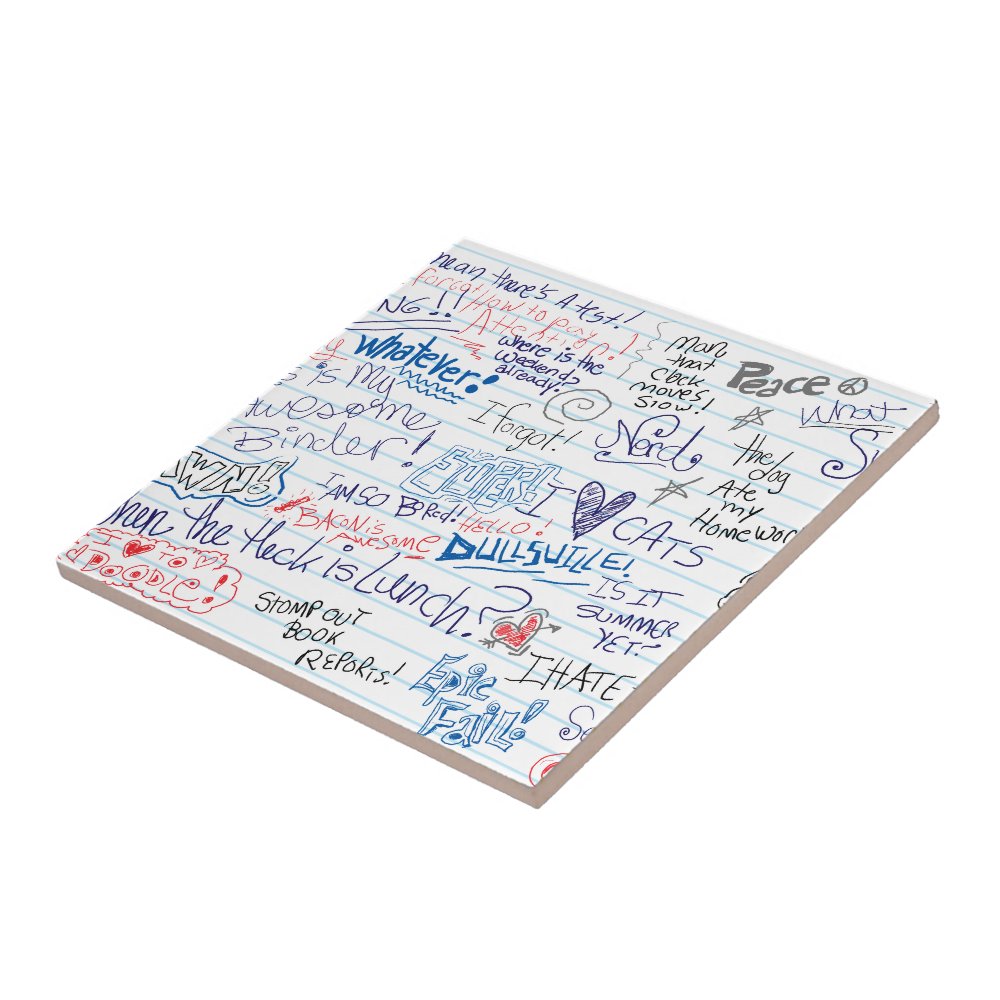 mean there's A test!
forgot How to pay
Attention!
NG!!
Whatever!
Where is the
weekend?
already!
Man
that
clock
moves!
Slow.
Peace
What
is My
Awesome
Binder!
I forgot!
Nerd
the
dog
Ate
my
Homework
AWN!
I AM SO BORED!
HELLO!
I ♥ CATS
BACON is
AWESOME
DULLSVILLE!
When the Heck is Lunch?
I ♥ TO
DOODLE!
IS IT
SUMMER
YET?
STOMP OUT
BOOK
REPORTS!
I HATE
Epic
Fail!